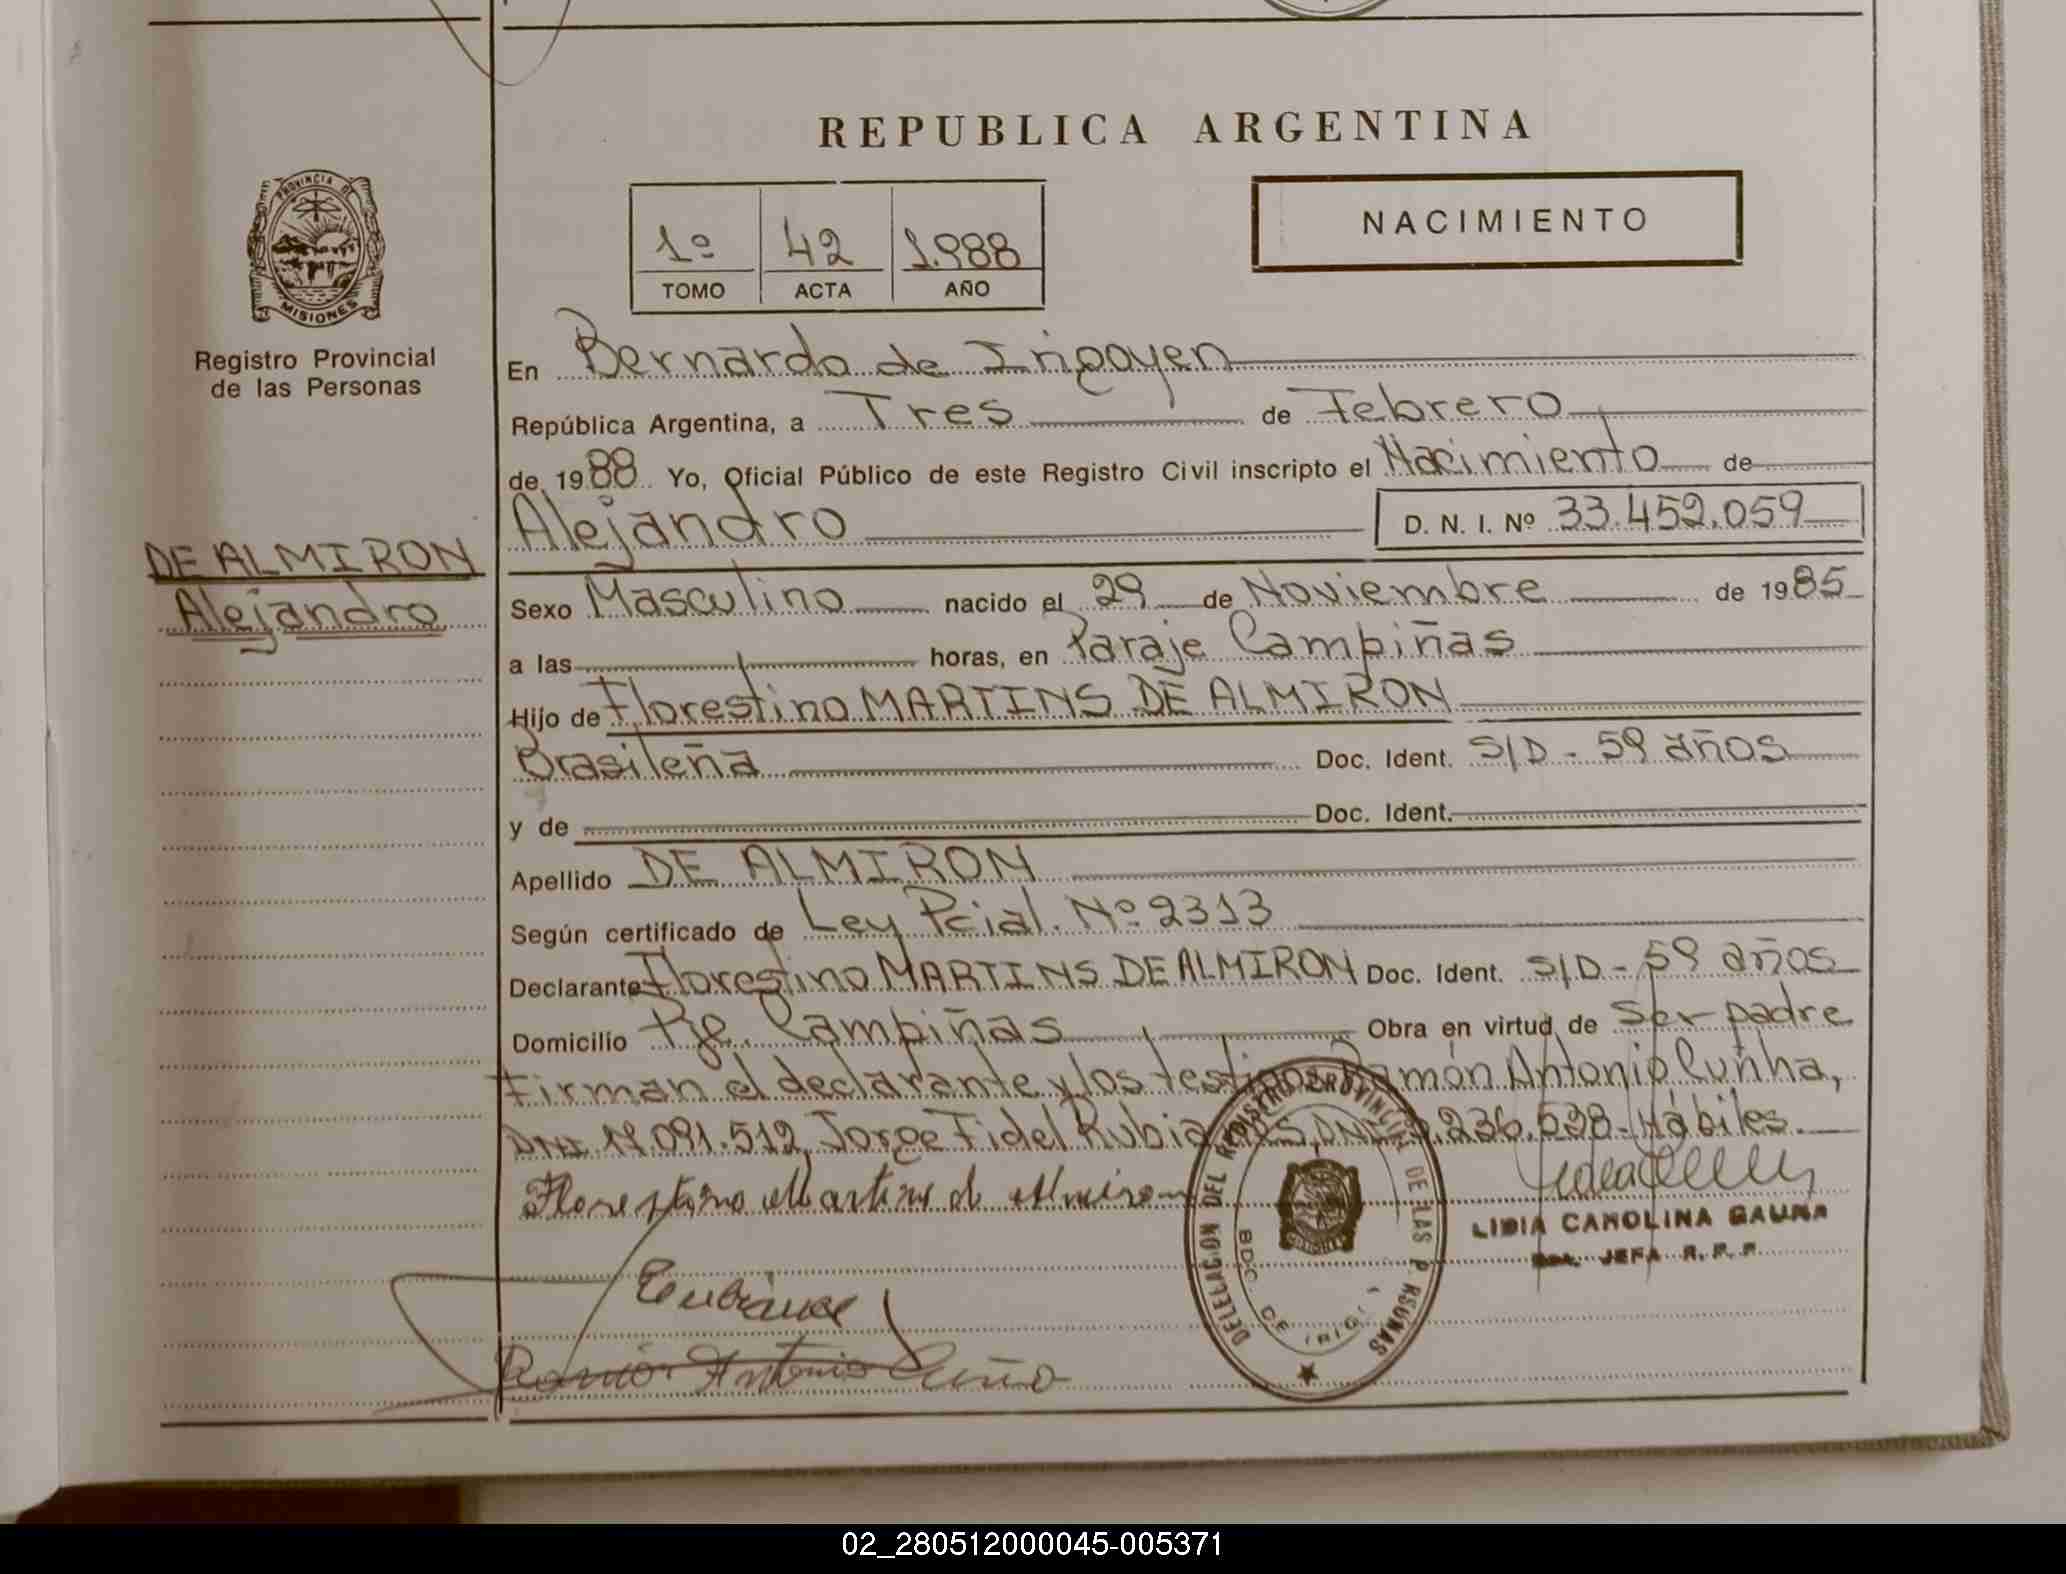 REPUBLICA ARGENTINA
PROVINCIA DE
MISIONES
Registro Provincial
de las Personas
1º 42 1.988
TOMO ACTA AÑO
NACIMIENTO
En Bernardo de Irigoyen
República Argentina, a Tres de Febrero
de 1988 Yo, Oficial Público de este Registro Civil inscripto el Nacimiento de
Alejandro D. N. I. Nº 33.452.059
DE ALMIRON
Alejandro
Sexo Masculino nacido el 29 de Noviembre de 1985
a las horas, en Paraje Campiñas
Hijo de Florestino MARTINS DE ALMIRON
Brasileña Doc. Ident. S/D - 59 años
y de Doc. Ident.
Apellido DE ALMIRON
Según certificado de Ley Pcial. Nº 2313
Declarante Florestino MARTINS DE ALMIRON Doc. Ident. S/D - 59 años
Domicilio Pje. Campiñas Obra en virtud de ser padre
Firman el declarante y los testigos Ramón Antonio Cunha,
DNI 14.091.512, Jorge Fidel DNI 236.538 - Hábiles.
Florestino Martins de Almiron
LIDIA CAROLINA GAUNA
JEFA R. P. P.
DELEGACION DEL REGISTRO PROVINCIAL DE LAS PERSONAS
BDO. DE IRIG.
Ramón Antonio Cuño
02_280512000045-005371